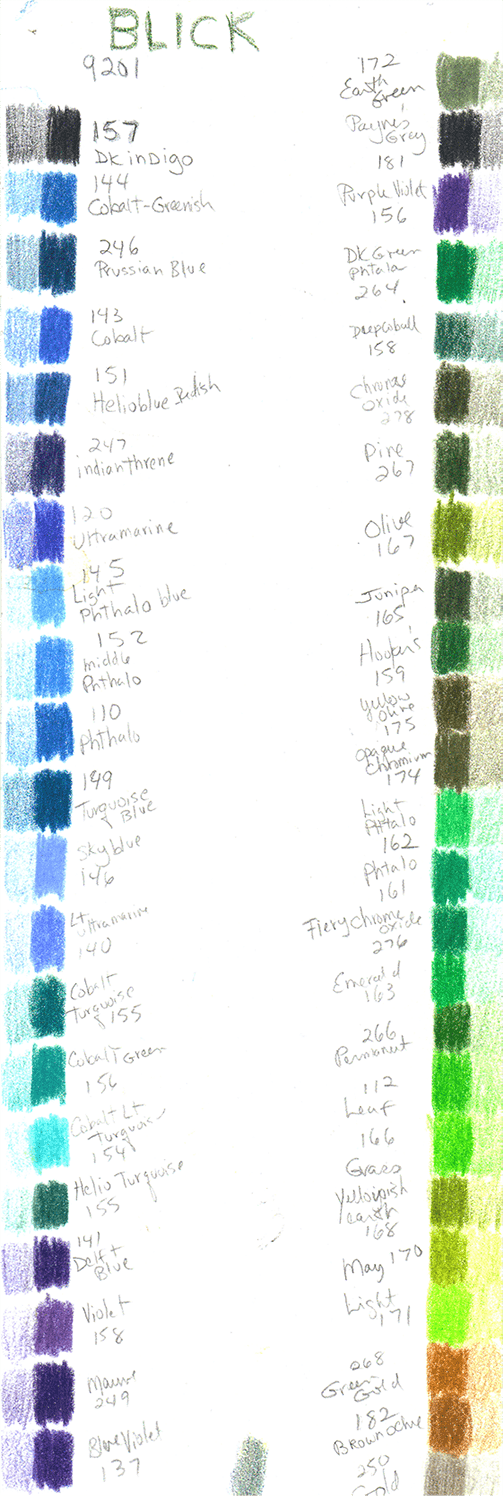 BLICK
9201
157
DK indigo
144
Cobalt-Greenish
246
Prussian Blue
143
Cobalt
151
Helioblue Redish
247
indianthrene
120
Ultramarine
145
Light
Phthalo blue
152
middle
Phthalo
110
Phthalo
149
Turquoise
Blue
Sky blue
146
Lt
Ultramarine
140
Cobalt
Turquoise
155
Cobalt Green
156
Cobalt Lt
Turquoise
154
Helio Turquoise
155
141
Delft
Blue
Violet
158
Mauve
249
Blue Violet
137
172
Earth
Green
Paynes
Grey
181
Purple Violet
156
DK Green
phtala
264
Deep Cobalt
158
Chrome
Oxide
278
Pine
267
Olive
167
Juniper
165
Hooker's
159
Yellow
Olive
175
opaque
Chromium
174
Light
Phtalo
162
Phtalo
161
Fiery chrome
oxide
276
Emerald
163
266
Permanent
112
Leaf
166
Grass
Yellowish
earth
168
May 170
Light
171
268
Green
Gold
182
Brown Ochre
250
Gold